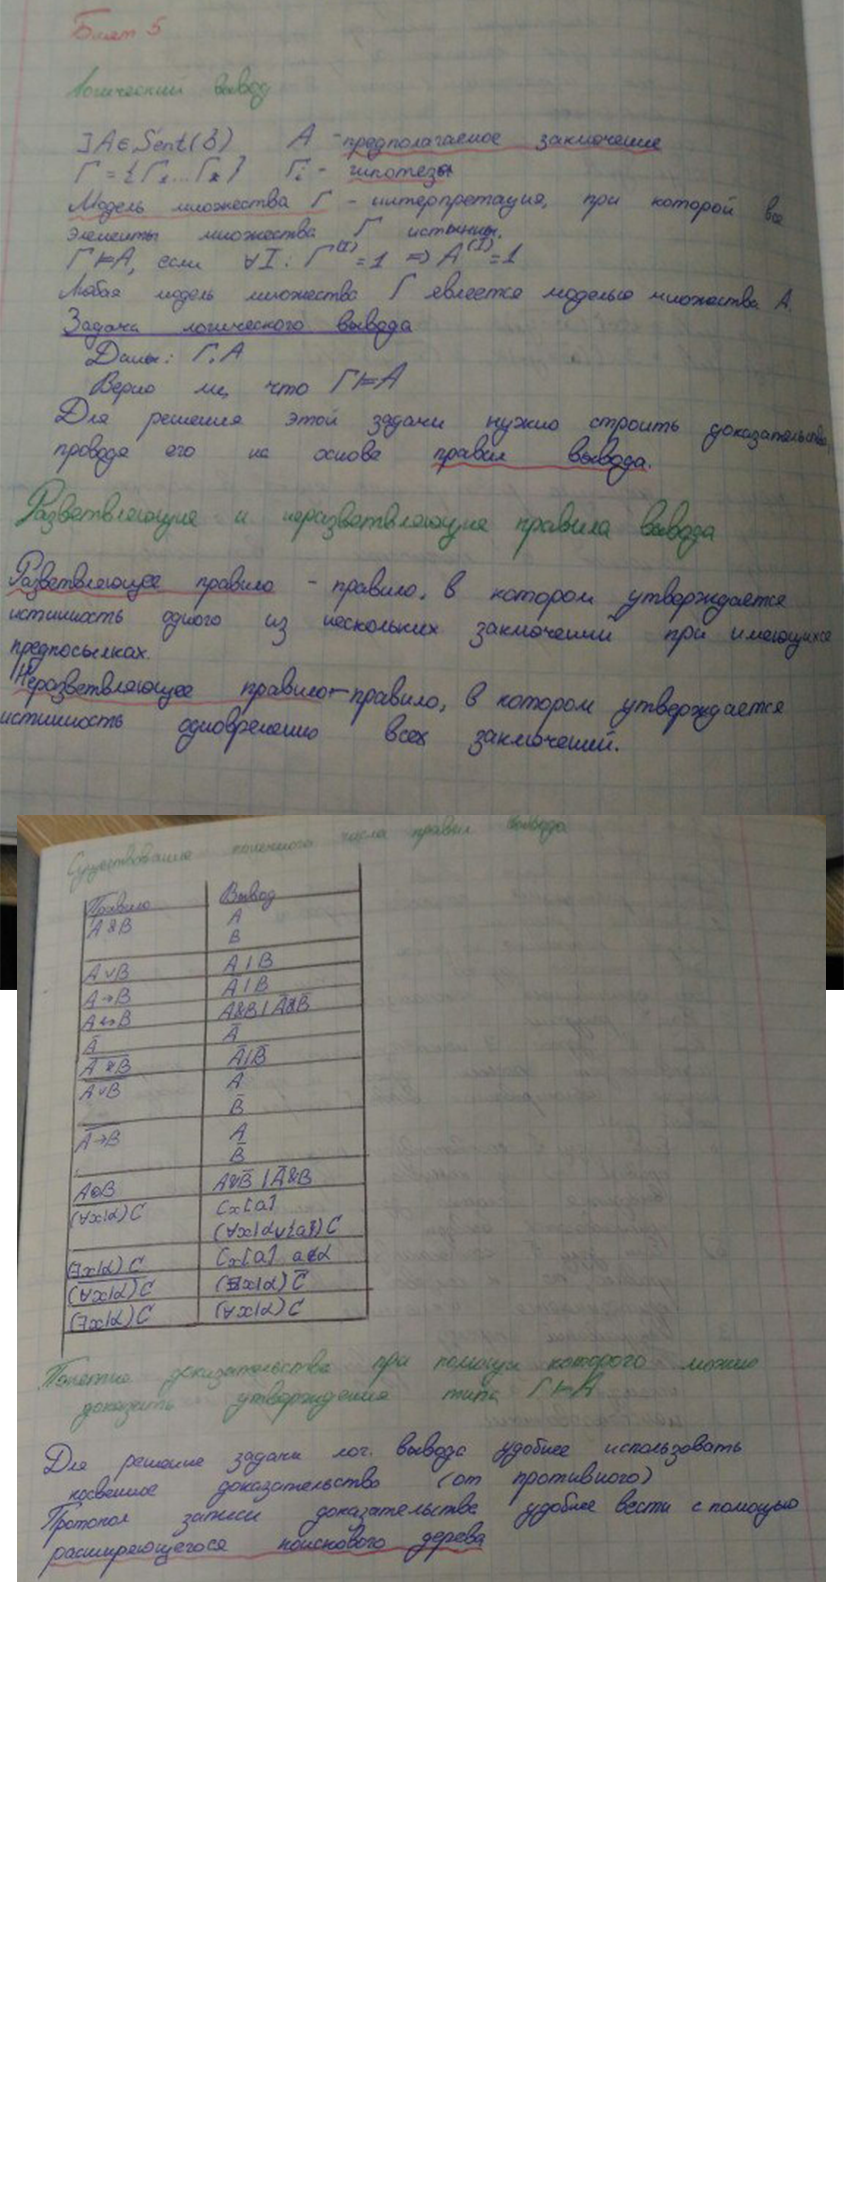 Билет 5
Логический вывод
∃A∈Sent(δ) A - предполагаемое заключение
Γ = {Γ₁...Γₖ} Γᵢ - гипотезы
Модель множества Γ - интерпретация, при которой все
элементы множества Γ истинны.
Γ⊨A, если ∀I: Γ^(I)=1 ⇒ A^(I)=1
Любая модель множества Γ является моделью множества A.
Задача логического вывода
Даны: Γ, A
Верно ли, что Γ⊨A
Для решения этой задачи нужно строить доказательство,
проводя его на основе правил вывода.
Разветвляющие и неразветвляющие правила вывода
Разветвляющее правило - правило, в котором утверждается
истинность одного из нескольких заключений при имеющихся
предпосылках.
Неразветвляющее правило - правило, в котором утверждается
истинность одновременно всех заключений.
Существование конечного числа правил вывода
Правило Вывод
A&B A
B
A∨B A | B
A→B A̅ | B
A↔B A&B | A̅&B̅
A̅ A̅
A̅&̅B̅ A̅ | B̅
A̅∨̅B̅ A̅
B̅
A̅→̅B̅ A
B̅
A⊕B A&B̅ | A̅&B
(∀x|α)C Cx[a]
(∀x|α∪{a})C
(∃x|α)C Cx[a] a∉α
(∀x|α)C (∃x|α)C̅
(∃x|α)C (∀x|α)C̅
Понятие доказательства при помощи которого можно
доказать утверждения типа Γ⊨A
Для решение задачи лог. вывода удобнее использовать
косвенное доказательство (от противного)
Протокол записи доказательства удобнее вести с помощью
расширяющегося поискового дерева